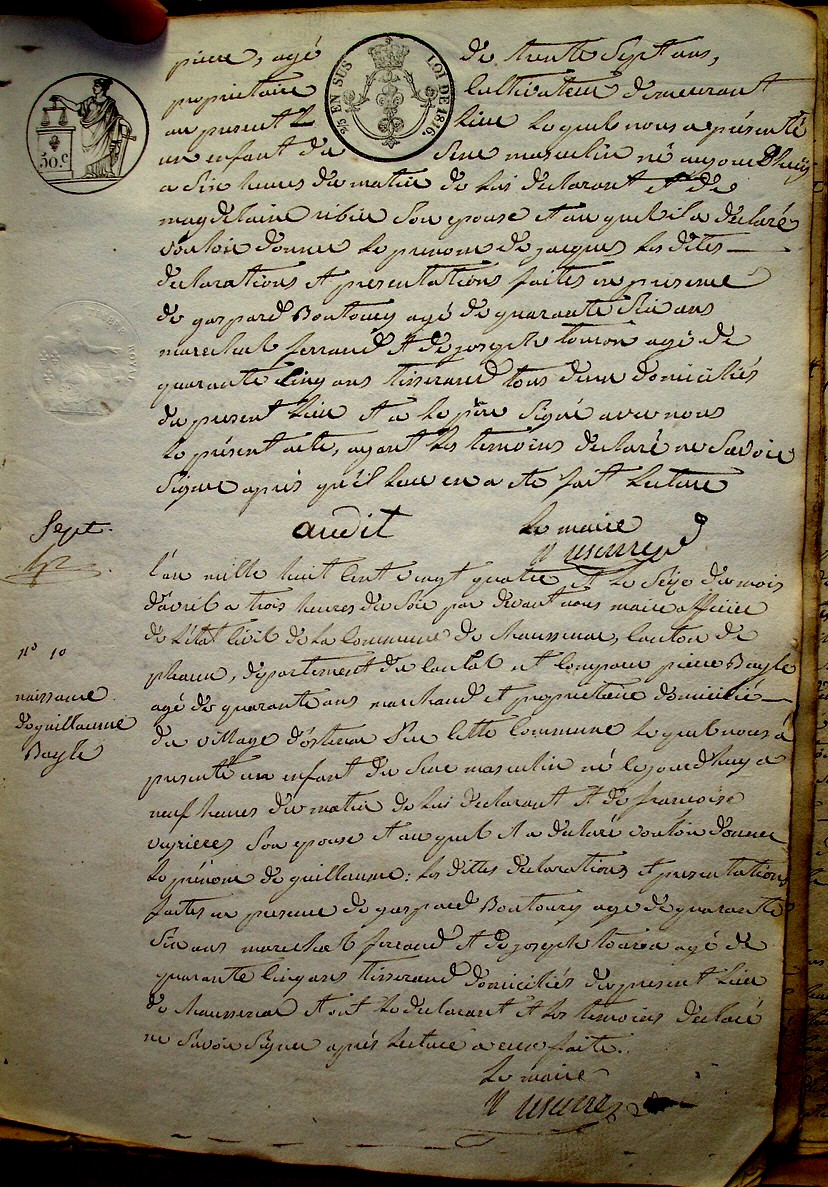 pierre, agé de trente sept ans,
proprietaire Cultivateur demeurant
au present Lieu Lequel nous a présenté
un enfant du Sexe masculin né aujourd'huy
a Six heures du matin de Lui declarant et de
magdelaine ribier Son epouse et au quel il a déclaré
vouloir donner Le prenom de jacques Les dites
declarations et presentations faites en presence
de gaspard Boutoury agé de quarante Six ans
marechal ferrand et de joseph touron agé de
quarante Cinq ans tisserand tous deux domiciliés
du present Lieu et a Le père Signé avec nous
Le présent acte, ayant Les temoins declaré ne Savoir
Signer après qu'il leur en a eté fait Lecture
audit Le maire
EN SUS LOI DE 1816
50.c
Sept.
L'an mille huit Cent vingt quatre et Le Seize du mois
d'avril a trois heures du Soir par devant nous maire officier
de L'état Civil de La Commune de Maussenac, Canton de
pleaux, département du Cantal est Comparu pierre Bayle
agé de quarante ans marchand et proprietaire domicilié
du village d'ostenac Sur Cette Commune Lequel nous a
presenté un enfant du Sexe masculin né Cejourd'huy a
neuf heures du matin de Lui declarant et de francoise
veyrieres Son epouse et au quel il a declaré vouloir donner
Le prénom de guillaume: Les dittes declarations et presentations
faites en presence de gaspard Boutoury agé de quarante
Six ans marechal ferrand et de joseph touron agé de
quarante Cinq ans tisserand domiciliés du present Lieu
de Maussenac et ont Le declarant et Les temoins declaré
ne Savoir Signer après Lecture a eux faite.
Le maire
n° 10
naissance
de guillaume
Bayle